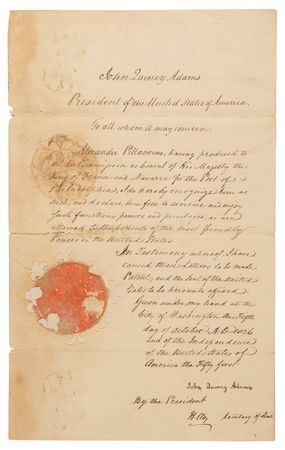 John Quincy Adams
President of the United States of America.
To all whom it may concern.
Alexander Pillavoine, having produced to
me his Commission as Consul of His Majesty the
King of France and Navarre for the Port of
Philadelphia, I do hereby recognize him as
such, and declare him free to exercise and enjoy
such functions, powers and privileges, as are
allowed to the Consuls of the most friendly
Powers in the United States.
In Testimony whereof, I have
caused these Letters to be made
Patent, and the Seal of the United
States to be hereunto affixed.
Given under my hand at the
City of Washington this Fifth
day of October A.D. 1826
and of the Independence
of the United States of
America the Fifty first.
John Quincy Adams
By the President
H. Clay Secretary of State